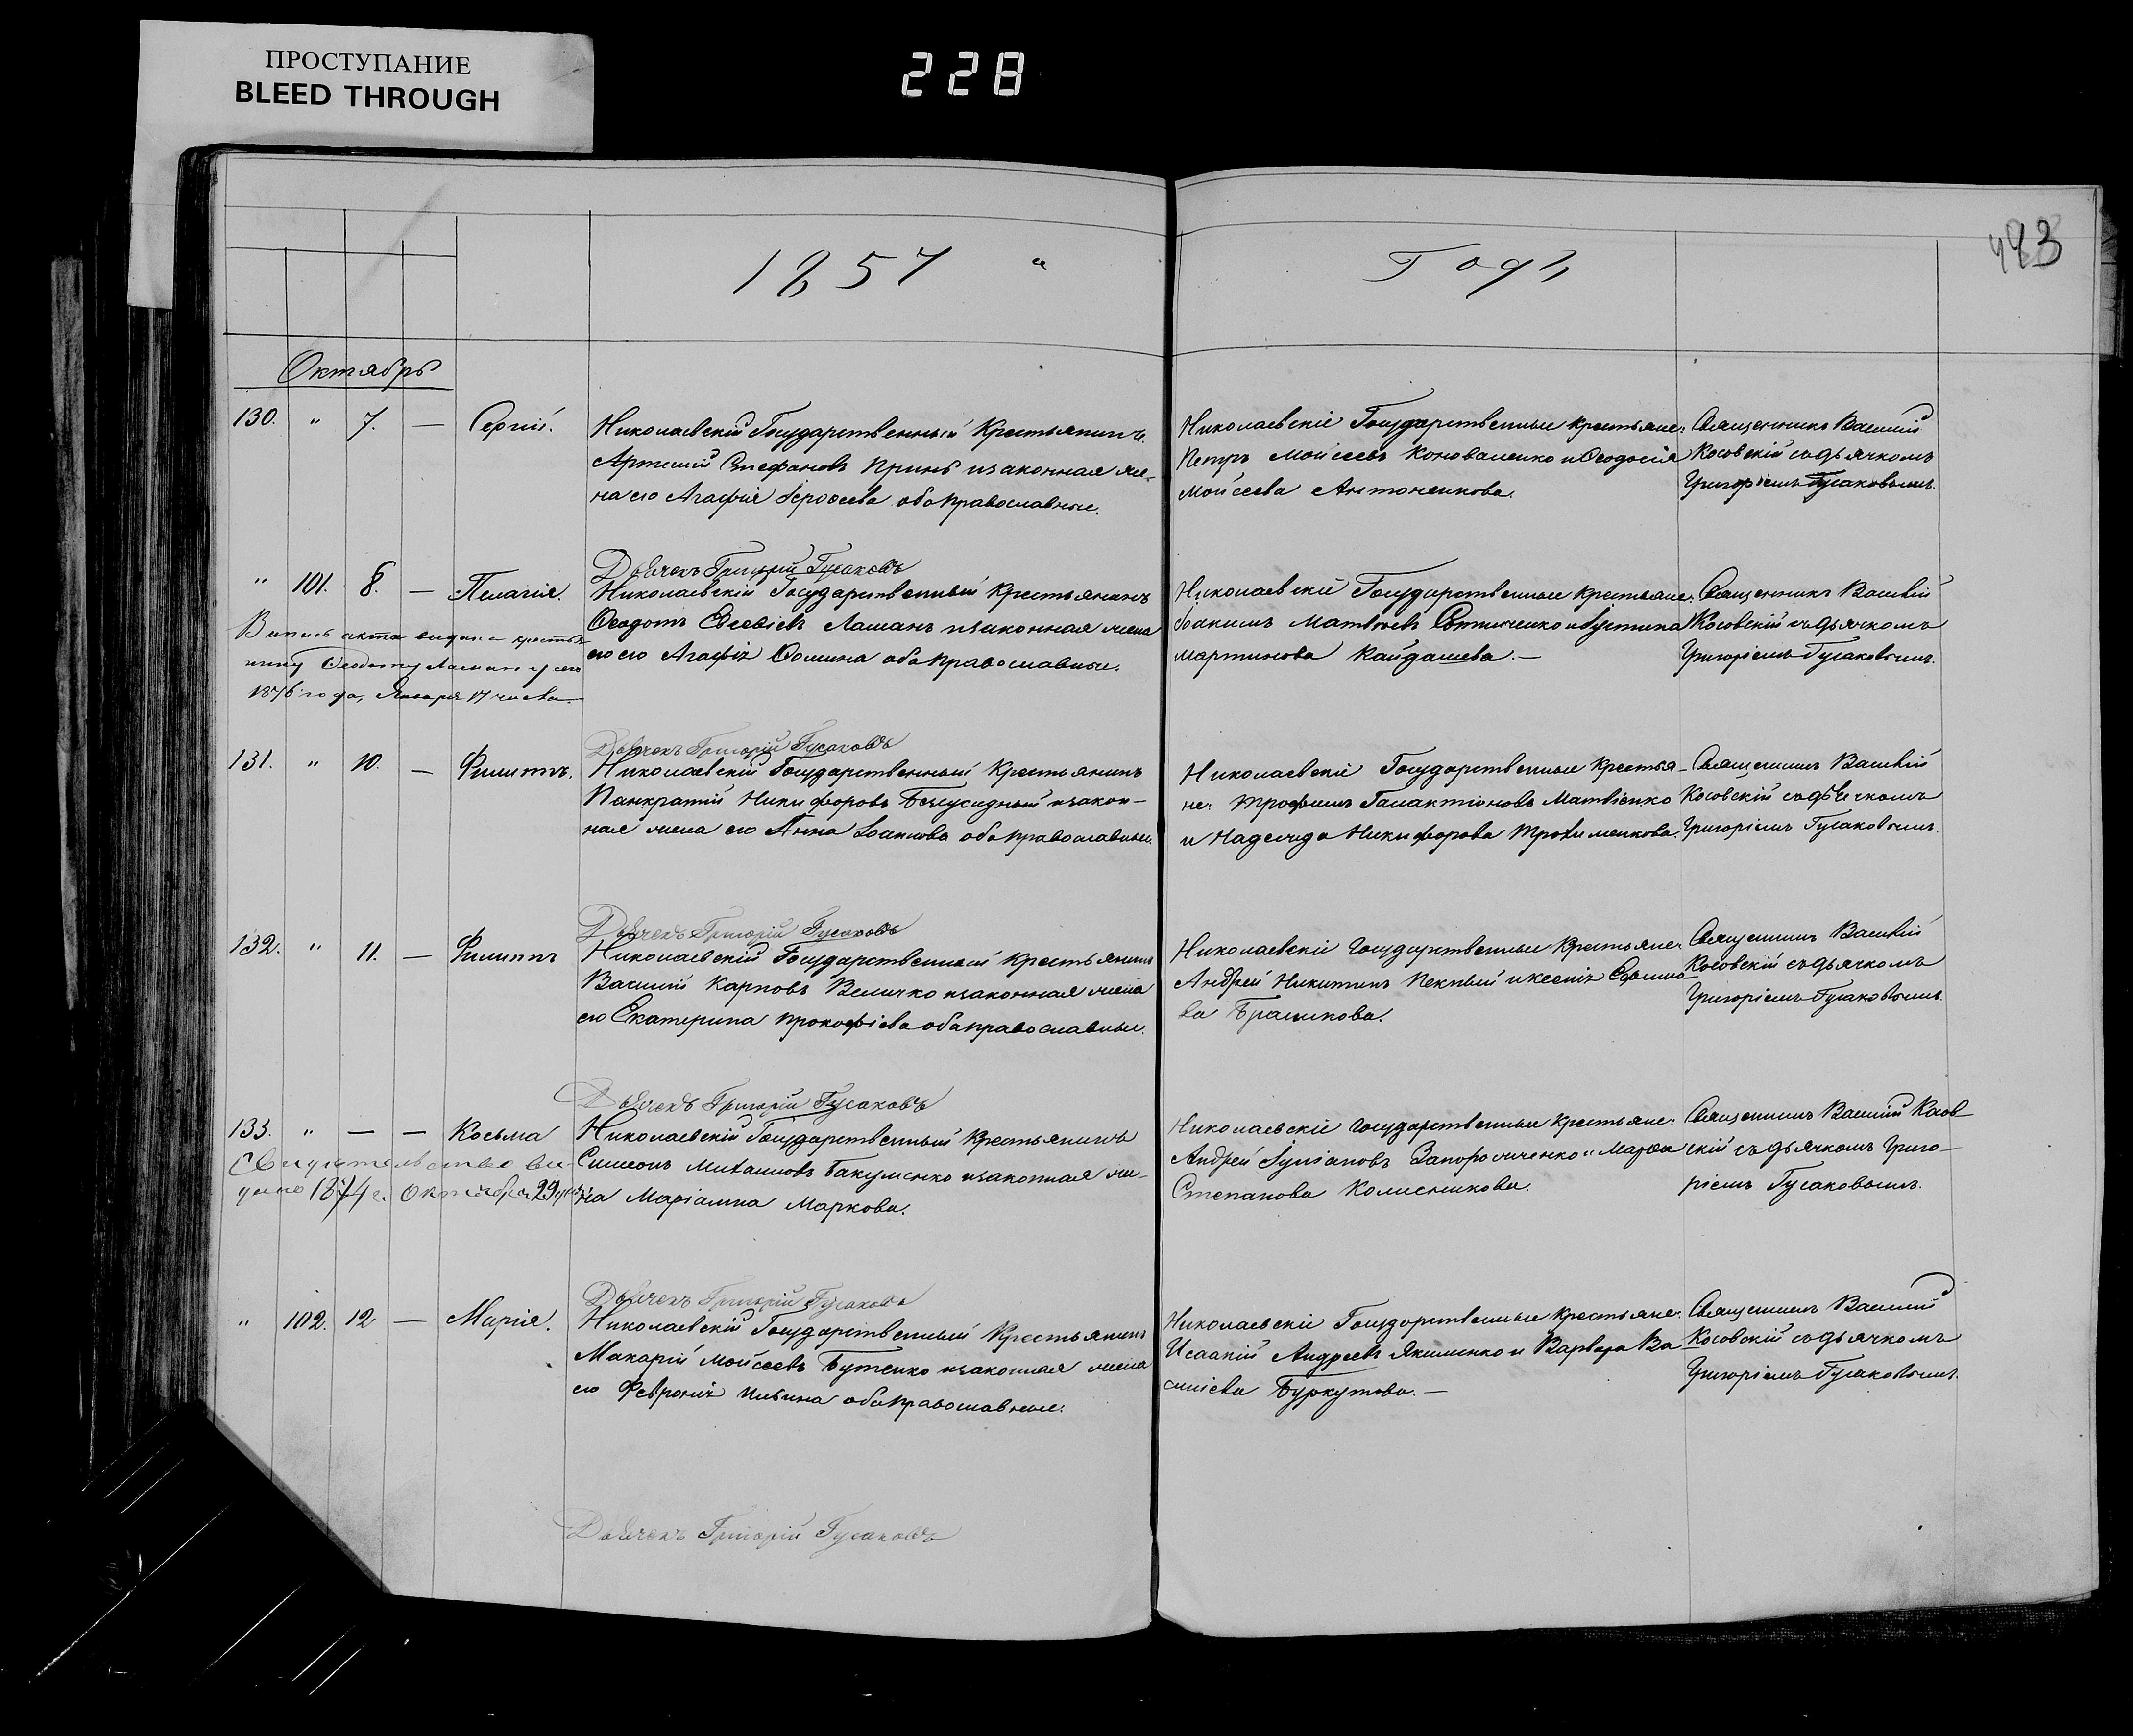 ПРОСТУПАНИЕ
BLEED THROUGH
228
483
1857 " Годъ
Октябрь
130. " 7. — Сергій.
Николаевскій Государственный Крестьянинъ
Артемій Стефановъ Принь и законная же-
на его Агафія Іероѳеева оба православные.
Николаевскіе Государственные крестьяне:
Петръ Мойсеевъ Коноваленко и Ѳеодосія
Мойсеева Антоненкова.
Священникъ Василій
Косовскій съ дьячкомъ
Григоріемъ Гусаковымъ.
Дьячекъ Григорій Гусаковъ
" 101. 8. — Пелагія.
Николаевскій Государственный Крестьянинъ
Ѳеодотъ Евсевіевъ Лашанъ и законная жена
его Агафія Ѳомина оба православные.
Николаевскіе Государственные крестьяне:
Іоакимъ Матвѣевъ и Іустина
Мартинова Кайдашева. —
Священникъ Василій
Косовскій съ дьячкомъ
Григоріемъ Гусаковымъ.
Выпись акта выдана крестья-
нину Ѳеодоту Лашану
1876 года, Января 17 числа.
Дьячекъ Григорій Гусаковъ
131. " 10. — Филиппъ.
Николаевскій Государственный Крестьянинъ
Панкратій Никифоровъ и закон-
ная жена его Анна Іоаннова оба православные.
Николаевскіе Государственные Крестья-
не: Трофимъ Галактіоновъ Матвіенко
и Надежда Никифорова Трохименкова.
Священникъ Василій
Косовскій съ дьячкомъ
Григоріемъ Гусаковымъ.
Дьячекъ Григорій Гусаковъ
132. " 11. — Филиппъ
Николаевскій Государственный Крестьянинъ
Василій Карповъ Величко и законная жена
его Екатерина Прокофіева оба православные.
Николаевскіе Государственные Крестьяне:
Андрей Никитинъ Пекный и Ксенія Ефимо-
ва Брашкова.
Священникъ Василій
Косовскій съ дьячкомъ
Григоріемъ Гусаковымъ.
Дьячекъ Григорій Гусаковъ
133. " — — Косьма
Николаевскій Государственный Крестьянинъ
Симеонъ Михаиловъ Бакуменко и законная же-
на Маріамна Маркова.
Николаевскіе Государственные Крестьяне:
Андрей Запорожченко и Марѳа
Степанова Колесникова.
Священникъ Василій Косов
скій съ дьячкомъ Григо-
ріемъ Гусаковымъ.
Свидетельство вы-
дано 1874 г. Октября 29
Дьячекъ Григорій Гусаковъ
" 102. 12 — Марія.
Николаевскій Государственный Крестьянинъ
Макарій Мойсеевъ Бутенко и законная жена
его Февронія Ильина оба православные.
Николаевскіе Государственные Крестьяне:
Исаакій Андреевъ Якименко и Варвара Ва
силіева Буркутова. —
Священникъ Василій
Косовскій съ дьячкомъ
Григоріемъ Гусаковымъ.
Дьячекъ Григорій Гусаковъ